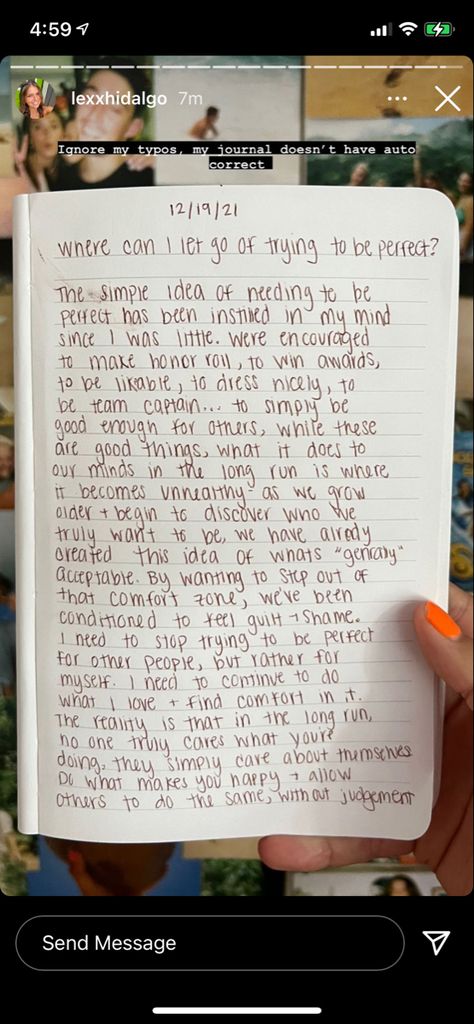 4:59
lexxhidalgo 7m
Ignore my typos, my journal doesn't have auto
correct
12/19/21
where can I let go of trying to be perfect?
The simple idea of needing to be
perfect has been instilled in my mind
since I was little. Were encouraged
to make honor roll, to win awards,
to be likable, to dress nicely, to
be team captain... to simply be
good enough for others, while these
are good things, what it does to
our minds in the long run is where
it becomes unhealthy - as we grow
older + begin to discover who we
truly want to be, we have alredy
created this idea of whats "genrally"
acceptable. By wanting to step out of
that comfort zone, we've been
conditioned to feel guilt + shame.
I need to stop trying to be perfect
for other people, but rather for
myself. I need to continue to do
what I love + find comfort in it.
The reality is that in the long run,
no one truly cares what you're
doing. they simply care about themselves
Do what makes you happy + allow
others to do the same, without judgement
Send Message